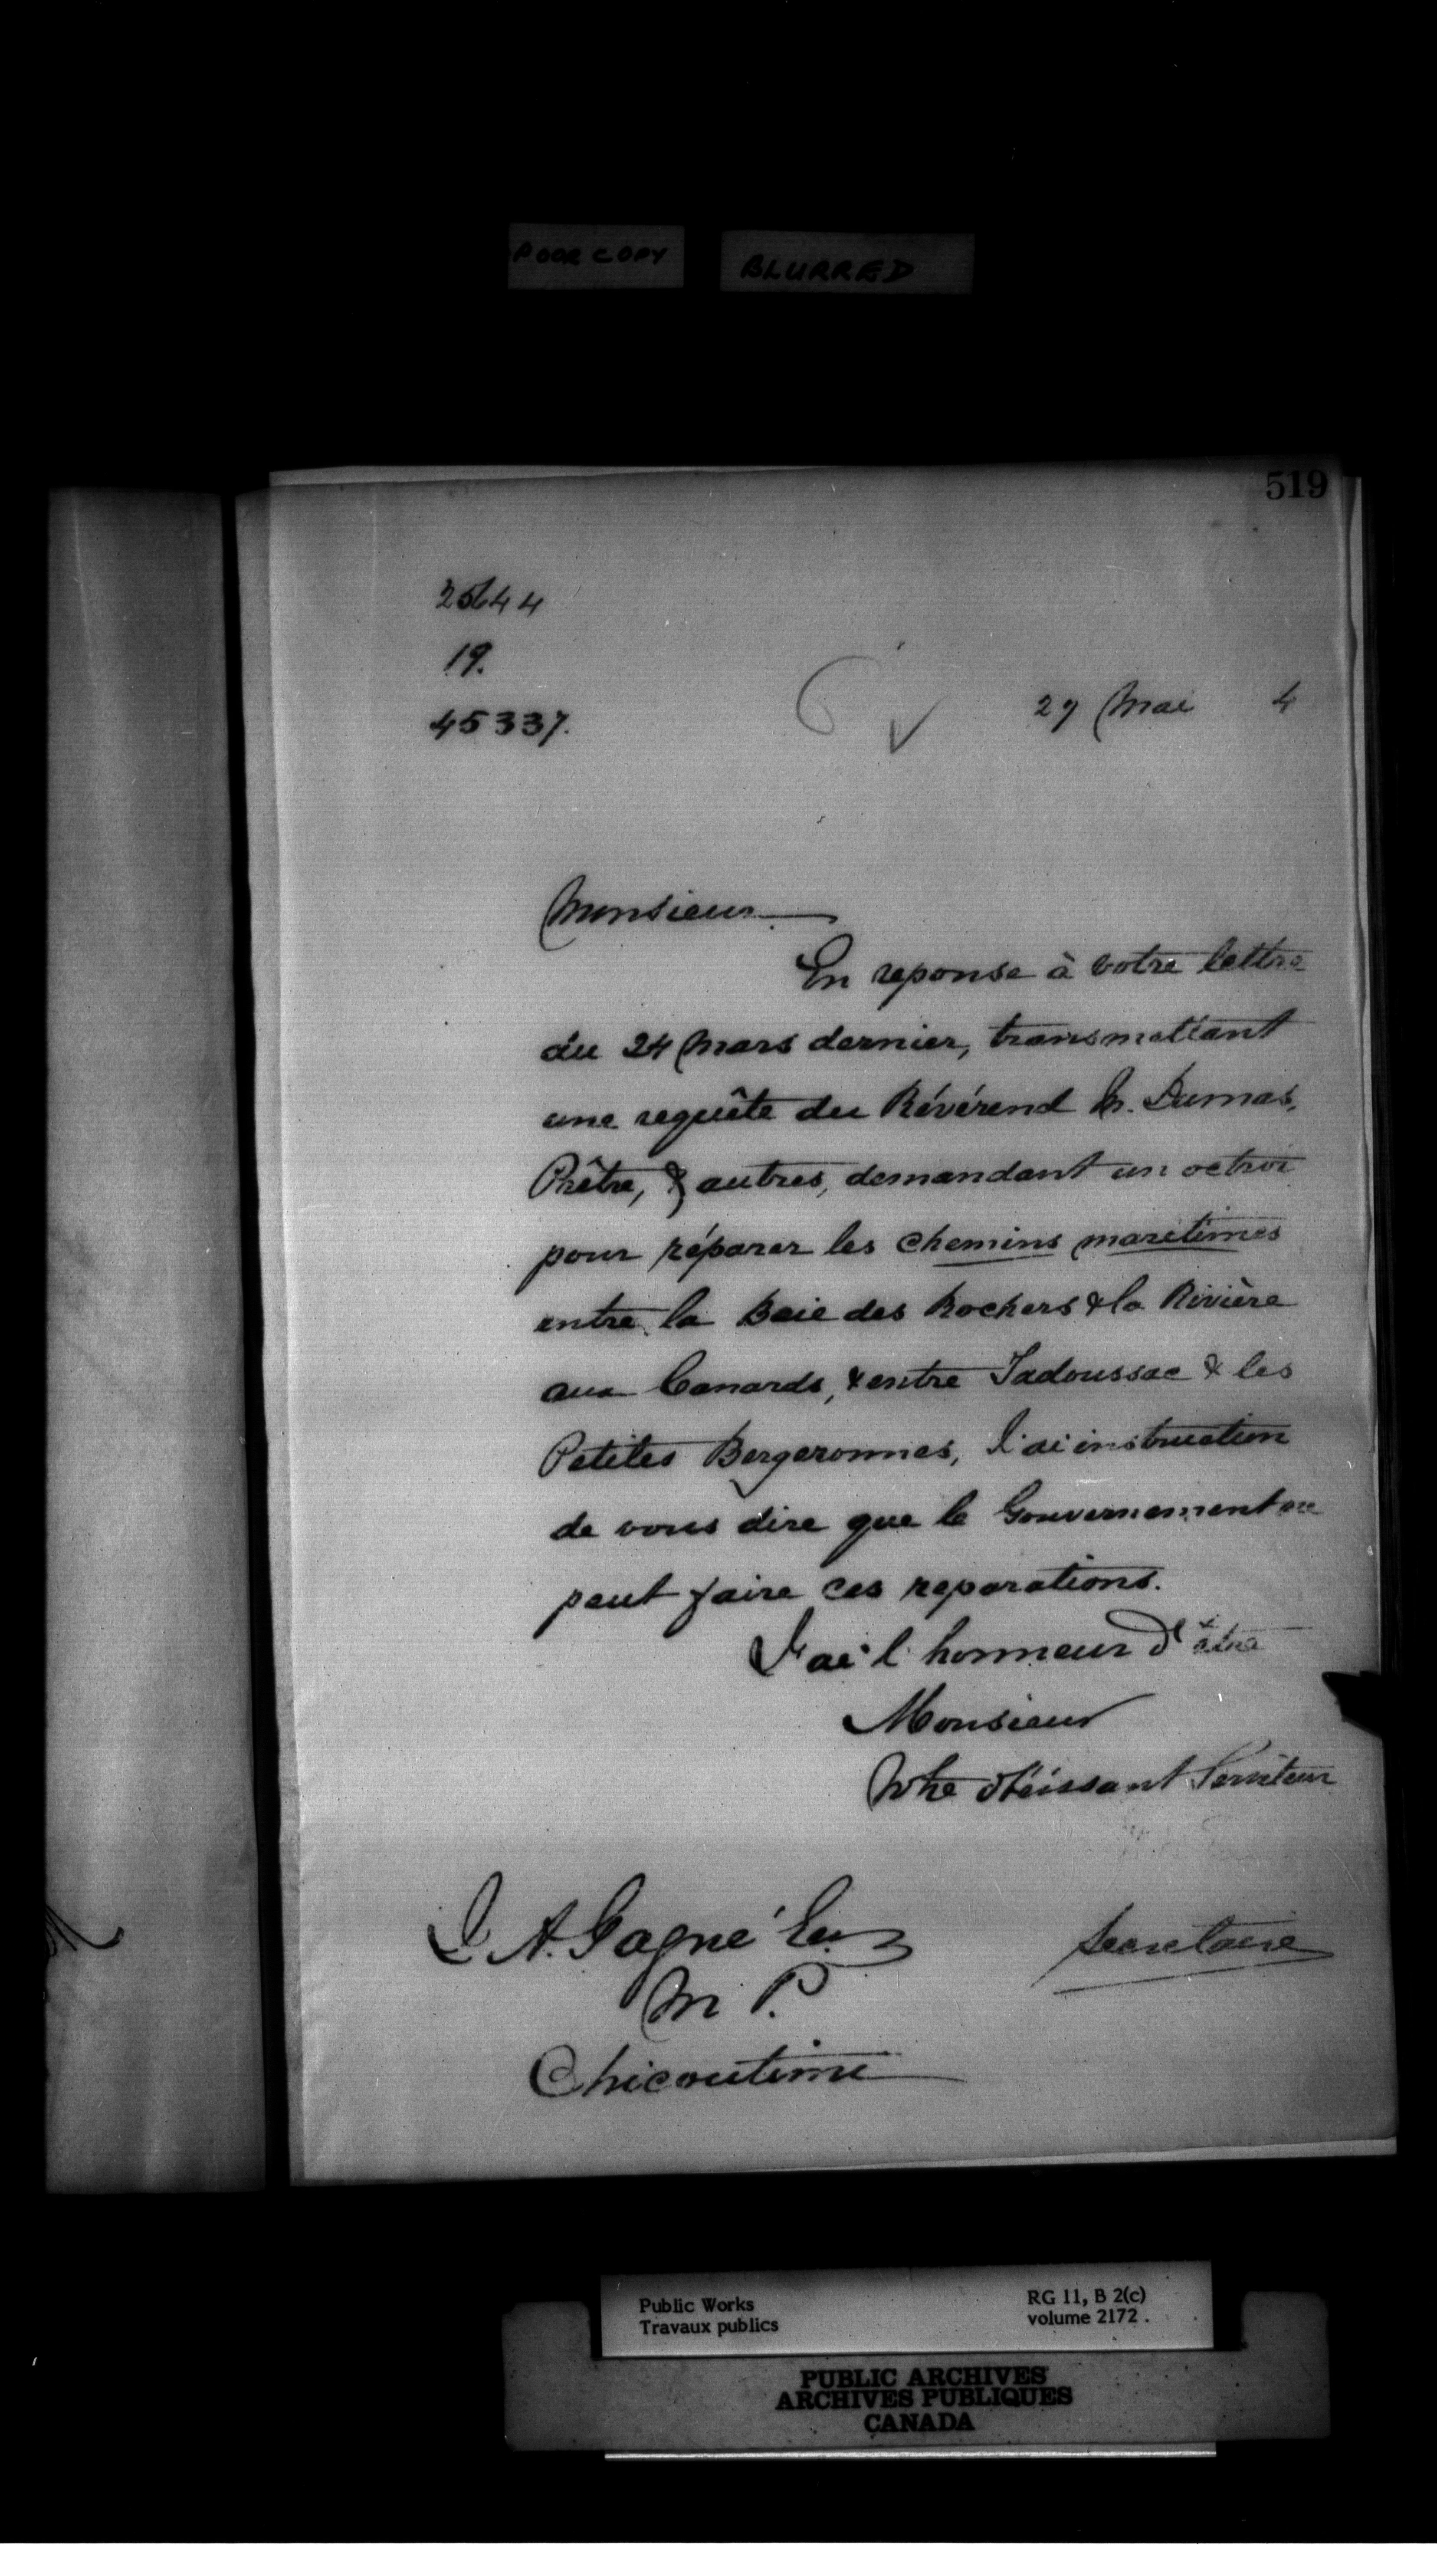 POOR COPY BLURRED
519
19.
45337.
27 Mai 4
Monsieur
En reponse à votre lettre
du 24 Mars dernier, transmettant
une requête du Révérend M. Dumas,
Prêtre, & autres, demandant un octroi
pour réparer les chemins maritimes
entre la Baie des Rochers & la Rivière
aux Canards, & entre Tadoussac & les
Petites Bergeronnes, J'ai instruction
de vous dire que le Gouvernement ne
peut faire ces reparations.
J'ai l'honneur d'être
Monsieur
Votre obéissant Serviteur
A. Gagné
Secretaire
M P.
Chicoutimi
Public Works RG 11, B 2(c)
Travaux publics volume 2172.
PUBLIC ARCHIVES
ARCHIVES PUBLIQUES
CANADA